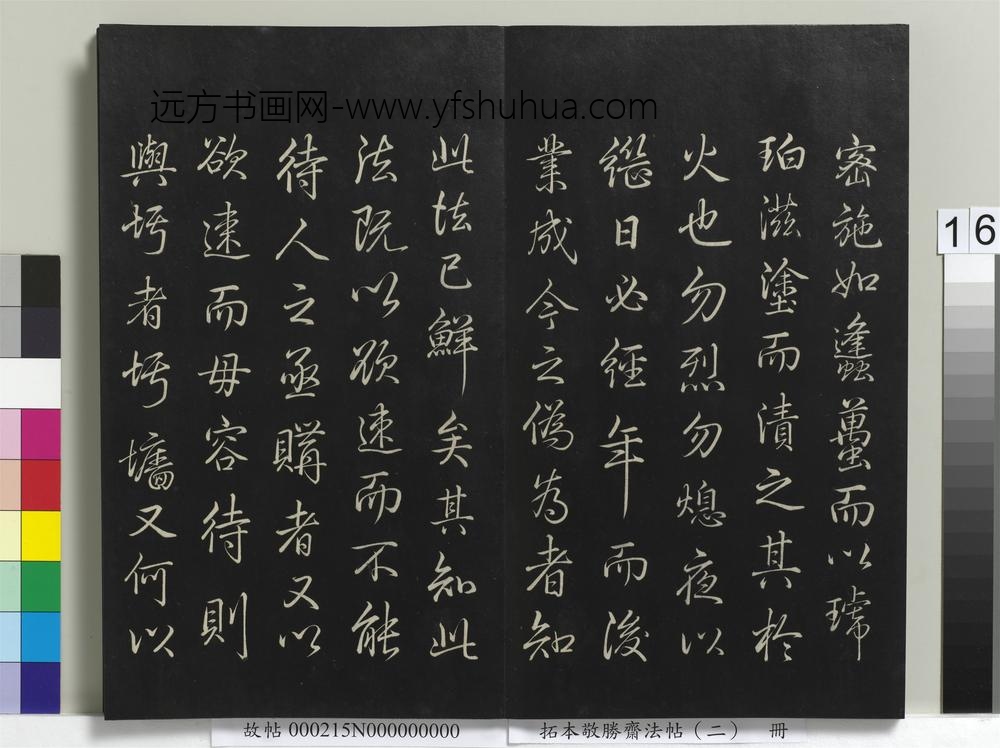 远方书画网-www.yfshuhua.com
密施如蠭蠆而以琥
珀滋塗而漬之其於
火也勿烈勿熄夜以
繼日必經年而後
業成今之偽為者知
此法已鮮矣其知此
法既以欲速而不能
待人之亟購者又以
欲速而毋容待則
與圬者圬墻又何以
16
故帖 000215N000000000
拓本敬勝齋法帖（二） 冊